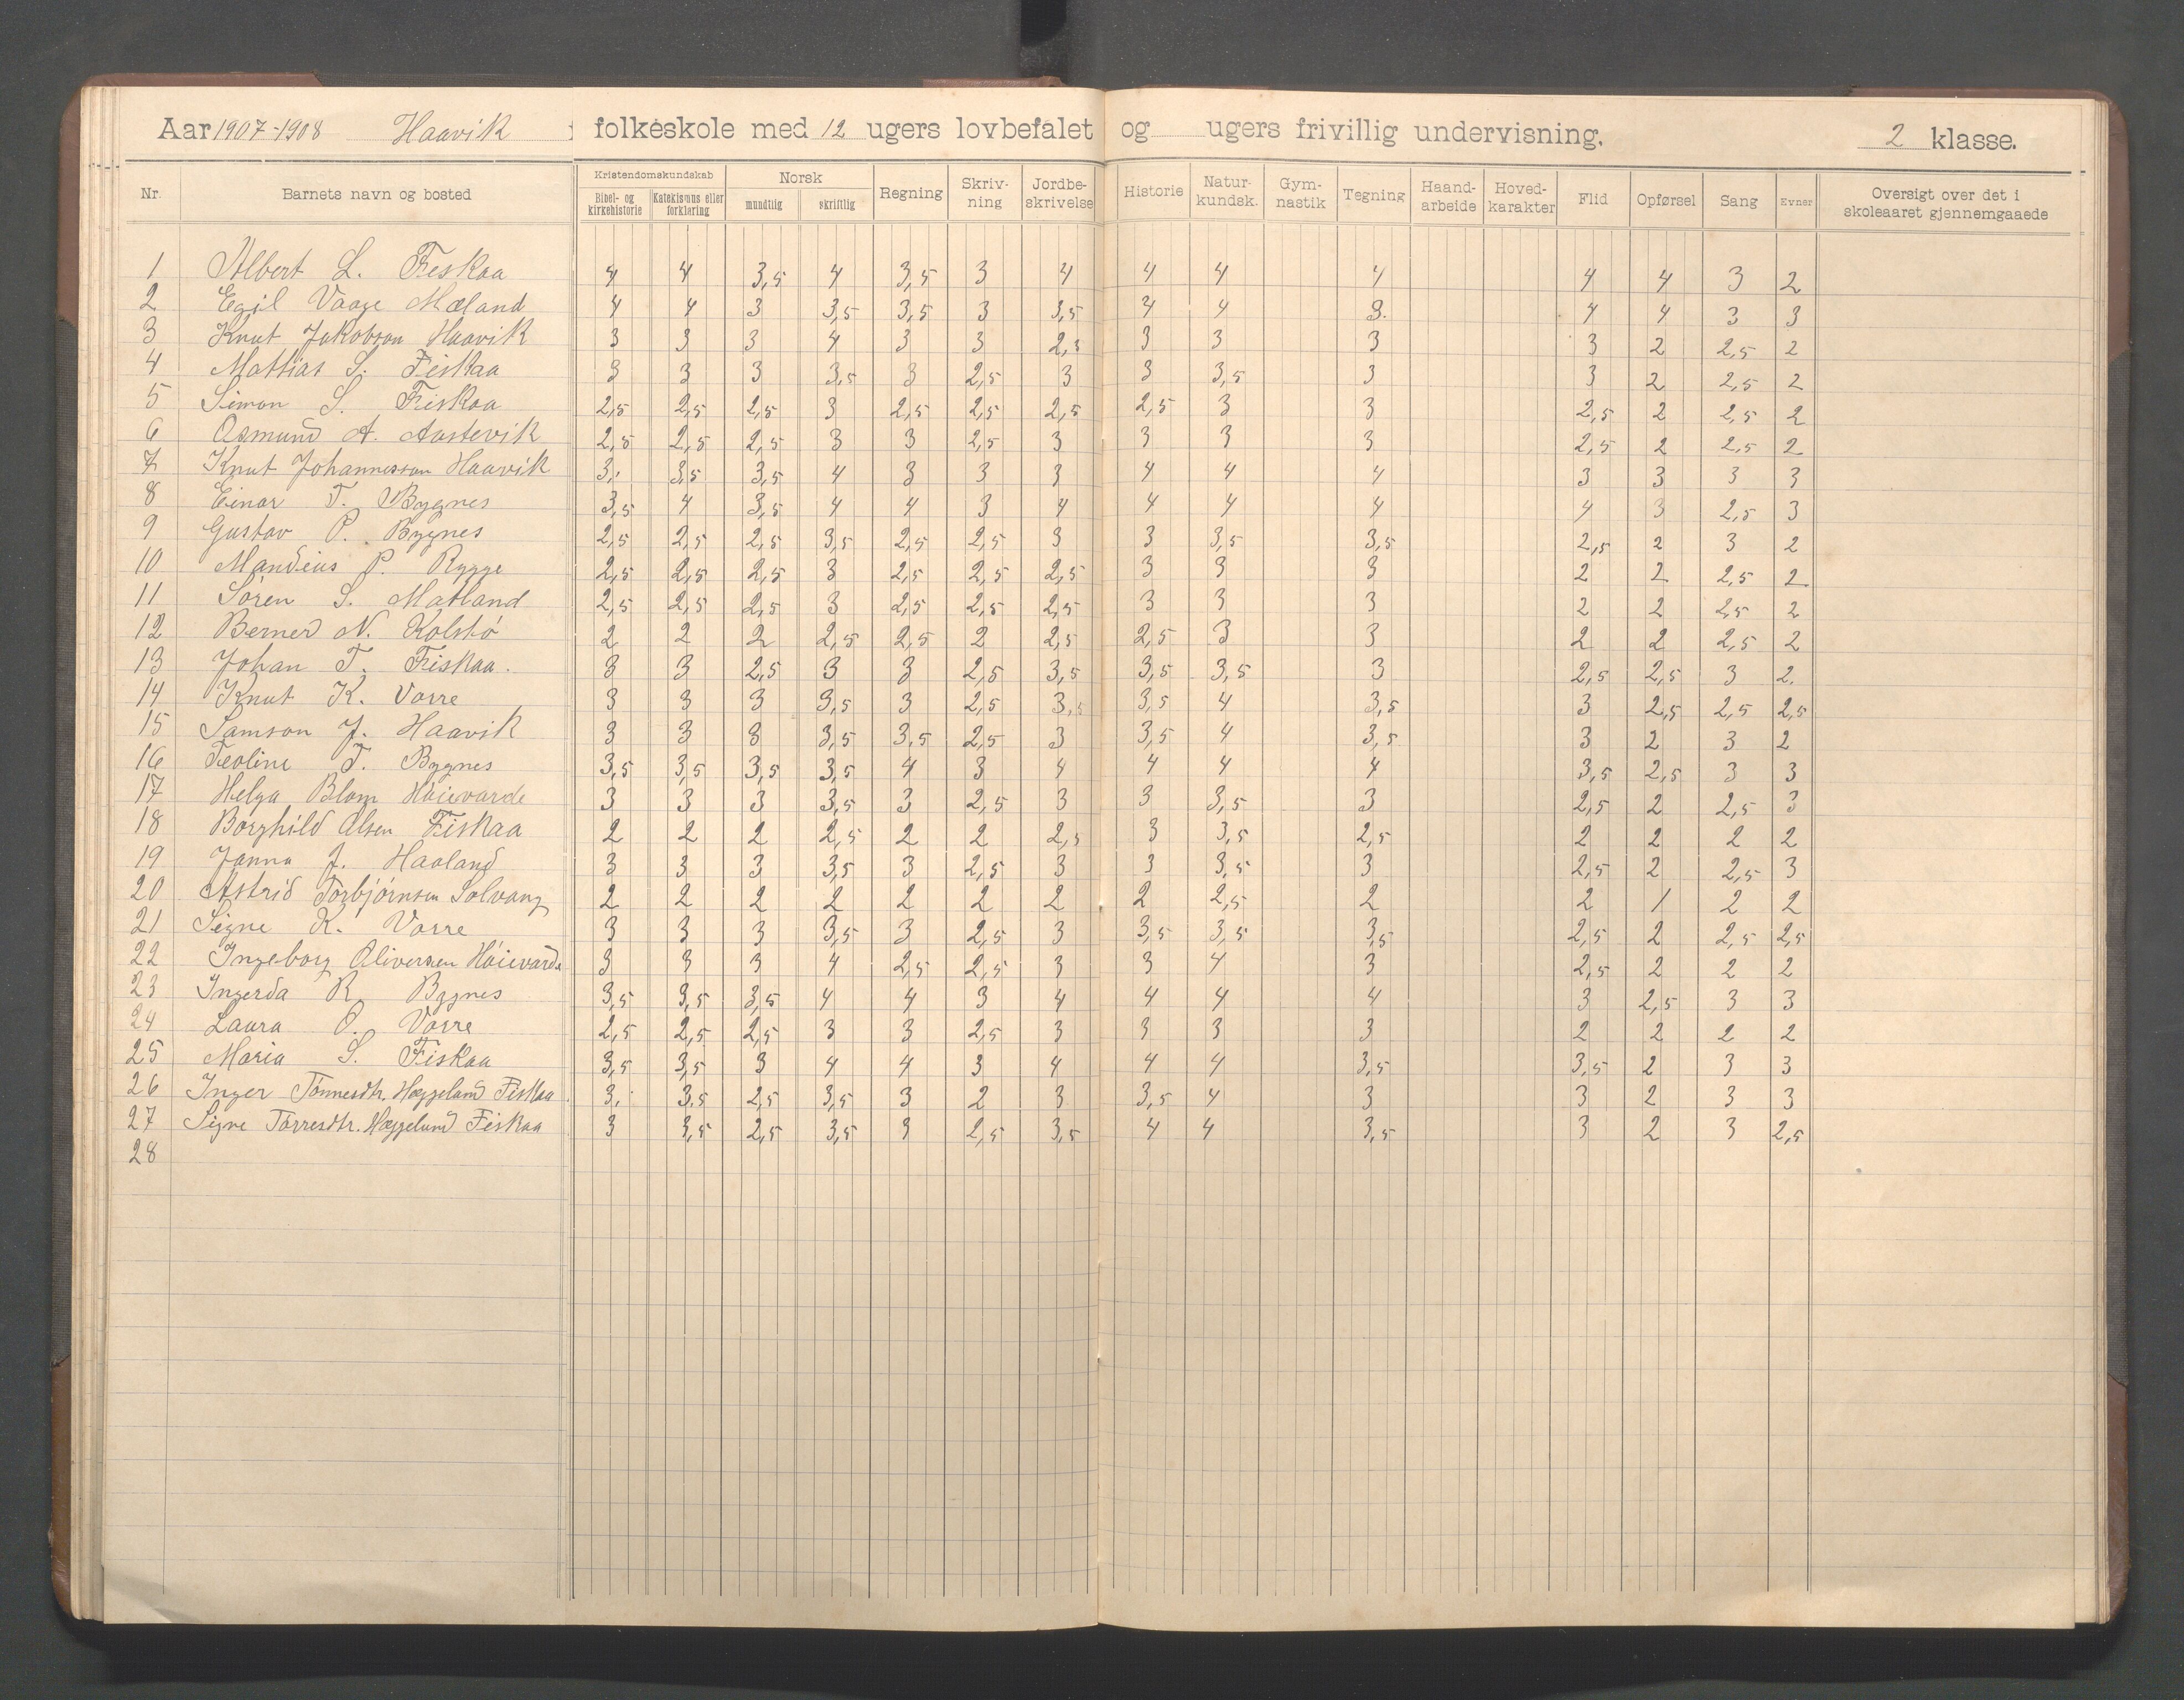 Aar 1907-1908 Haavik folkeskole med 12 ugers lovbefalet og ugers frivillig undervisning. 2 klasse.
Nr. Barnets navn og bosted Kristendomskundskab Bibel- og kirkehistorie Katekismus eller forklaring Norsk mundtlig skriftlig Regning Skriv-ning Jordbe-skrivelse Historie Natur-kundsk. Gym-nastik Tegning Haand-arbeide Hoved-karakter Flid Opførsel Sang Evner Oversigt over det i skoleaaret gjennemgaaede
1 Albert L. Fiskaa 4 4 3,5 4 3,5 3 4 4 4 4 4 4 3 2
2 Egil Vaage Mæland 4 4 3 3,5 3,5 3 3,5 4 4 3. 4 4 3 3
3 Knut Jakobson Haavik 3 3 3 4 3 3 2,5 3 3 3 3 2 2,5 2
4 Mattias S. Fiskaa 3 3 3 3,5 3 2,5 3 3 3,5 3 3 2 2,5 2
5 Simon S. Fiskaa 2,5 2,5 2,5 3 2,5 2,5 2,5 2,5 3 3 2,5 2 2,5 2
6 Osmund A. Austevik 2,5 2,5 2,5 3 3 2,5 3 3 3 3 2,5 2 2,5 2
7 Knut Johannesson Haavik 3, 3,5 3,5 4 3 3 3 4 4 4 3 3 3 3
8 Einar T. Bygnes 3,5 4 3,5 4 4 3 4 4 4 4 4 3 2,5 3
9 Gustav P. Bygnes 2,5 2,5 2,5 3,5 2,5 2,5 3 3 3,5 3,5 2,5 2 3 2
10 Mandius P. Rygge 2,5 2,5 2,5 3 2,5 2,5 2,5 3 3 3 2 2 2,5 2
11 Sören S. Matland 2,5 2,5 2,5 3 2,5 2,5 2,5 3 3 3 2 2 2,5 2
12 Berner N. Kolstö 2 2 2 2,5 2,5 2 2,5 2,5 3 3 2 2 2,5 2
13 Johan T. Fiskaa. 3 3 2,5 3 3 2,5 3,5 3,5 3,5 3 2,5 2,5 3 2.
14 Knut K. Vorre 3 3 3 3,5 3 2,5 3,5 3,5 4 3,5 3 2,5 2,5 2,5
15 Samson J. Haavik 3 3 3 3,5 3,5 2,5 3 3,5 4 3,5 3 2 3 2
16 Teoline T. Bygnes 3,5 3,5 3,5 3,5 4 3 4 4 4 4 3,5 2,5 3 3
17 Helga Blom Höievarde 3 3 3 3,5 3 2,5 3 3 3,5 3 2,5 2 2,5 3
18 Borghild Olsen Fiskaa 2 2 2 2,5 2 2 2,5 3 3,5 2,5 2 2 2 2
19 Janna J. Haaland 3 3 3 3,5 3 2,5 3 3 3,5 3 2,5 2 2,5 3
20 Astrid Torbjörnsen Solvang 2 2 2 2 2 2 2 2 2,5 2 2 1 2 2
21 Signe K. Vorre 3 3 3 3,5 3 2,5 3 3,5 3,5 3,5 2,5 2 2,5 2,5
22 Ingeborg Oliversen Höievarde 3 3 3 4 2,5 2,5 3 3 4 3 2,5 2 2 2
23 Ingerda R Bygnes 3,5 3,5 3,5 4 4 3 4 4 4 4 3 2,5 3 3
24 Laura O. Vorre 2,5 2,5 2,5 3 3 2,5 3 3 3 3 2 2 2 2
25 Maria S. Fiskaa 3,5 3,5 3 4 4 3 4 4 4 3,5 3,5 2 3 3
26 Inger Tönnesdtr. Hæggelund Fiskaa 3, 3,5 2,5 3,5 3 2 3 3,5 4 3 3 2 3 3
27 Signe Torresdtr. Hæggelund Fiskaa 3 3,5 2,5 3,5 3 2,5 3,5 4 4 3,5 3 2 3 2,5
28